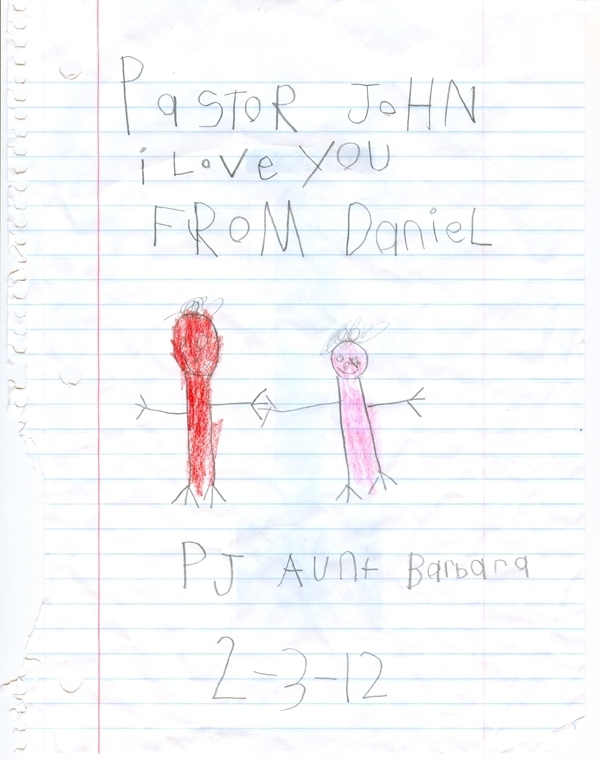 Pastor John
i Love you
From Daniel
PJ Aunt Barbara
2-3-12